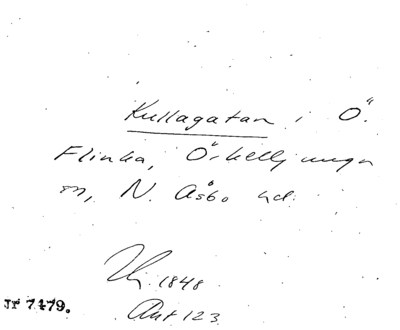 Kullagatan i Ö.
Flinka, Örkelljunga
sn, N. Åsbo hd.
1848
Ant 123
JF 7479.